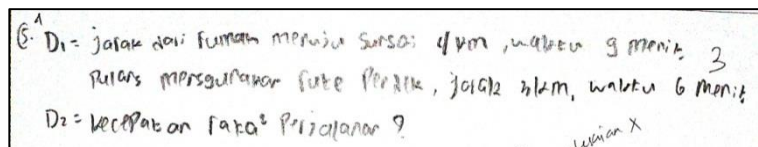 D1 = jarak dari rumah menuju sungai 4 km, waktu 9 menit 3
Pulang menggunakan rute pendek, jarak 3 km, waktu 6 menit
D2 = kecepatan rata² perjalanan ?